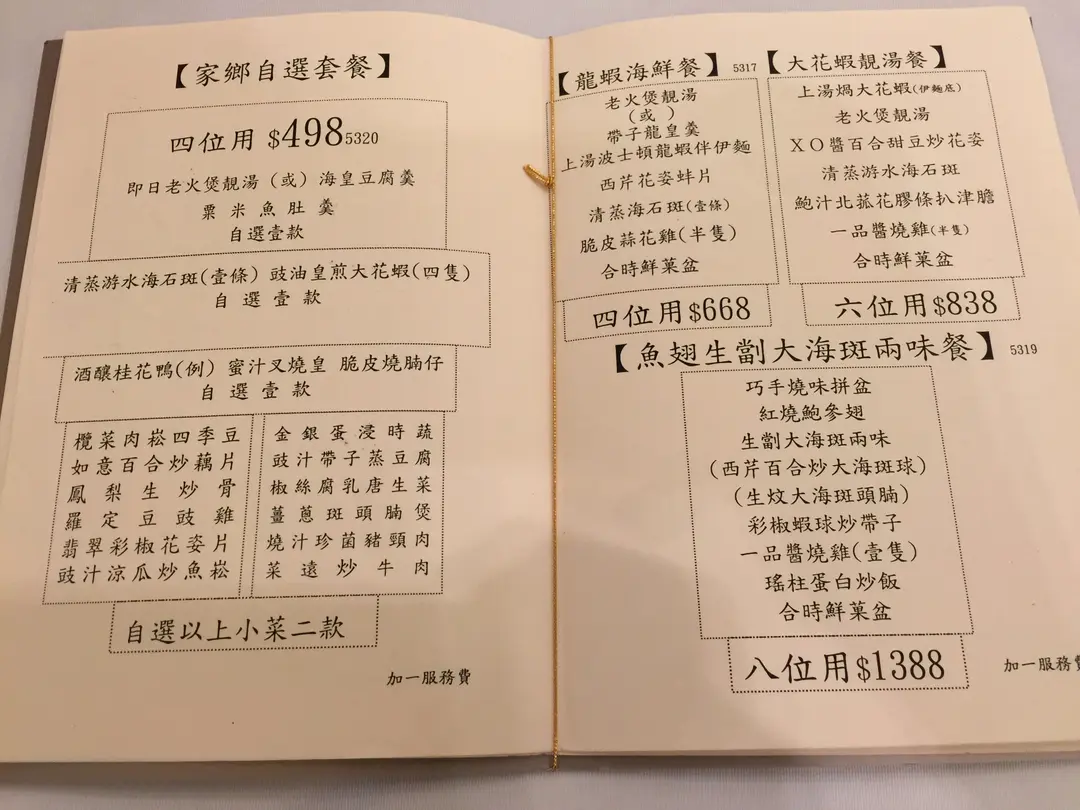 【家鄉自選套餐】
四位用 $498 5320
即日老火煲靚湯（或）海皇豆腐羹
粟米魚肚羹
自選壹款
清蒸游水海石斑(壹條) 豉油皇煎大花蝦(四隻)
自選壹款
酒釀桂花鴨(例) 蜜汁叉燒皇 脆皮燒腩仔
自選壹款
欖菜肉崧四季豆
如意百合炒藕片
鳳梨生炒骨
羅定豆豉雞
翡翠彩椒花姿片
豉汁涼瓜炒魚崧
金銀蛋浸時蔬
豉汁帶子蒸豆腐
椒絲腐乳唐生菜
薑蔥斑頭腩煲
燒汁珍菌豬頸肉
菜遠炒牛肉
自選以上小菜二款
加一服務費
【龍蝦海鮮餐】 5317
老火煲靚湯
(或)
帶子龍皇羹
上湯波士頓龍蝦伴伊麵
西芹花姿蚌片
清蒸海石斑(壹條)
脆皮蒜花雞(半隻)
合時鮮菓盆
四位用$668
【大花蝦靚湯餐】
上湯焗大花蝦(伊麵底)
老火煲靚湯
XO醬百合甜豆炒花姿
清蒸游水海石斑
鮑汁北菰花膠條扒津膽
一品醬燒雞(半隻)
合時鮮菓盆
六位用$838
【魚翅生劏大海斑兩味餐】 5319
巧手燒味拼盆
紅燒鮑參翅
生劏大海斑兩味
(西芹百合炒大海斑球)
(生炆大海斑頭腩)
彩椒蝦球炒帶子
一品醬燒雞(壹隻)
瑤柱蛋白炒飯
合時鮮菓盆
八位用$1388
加一服務費